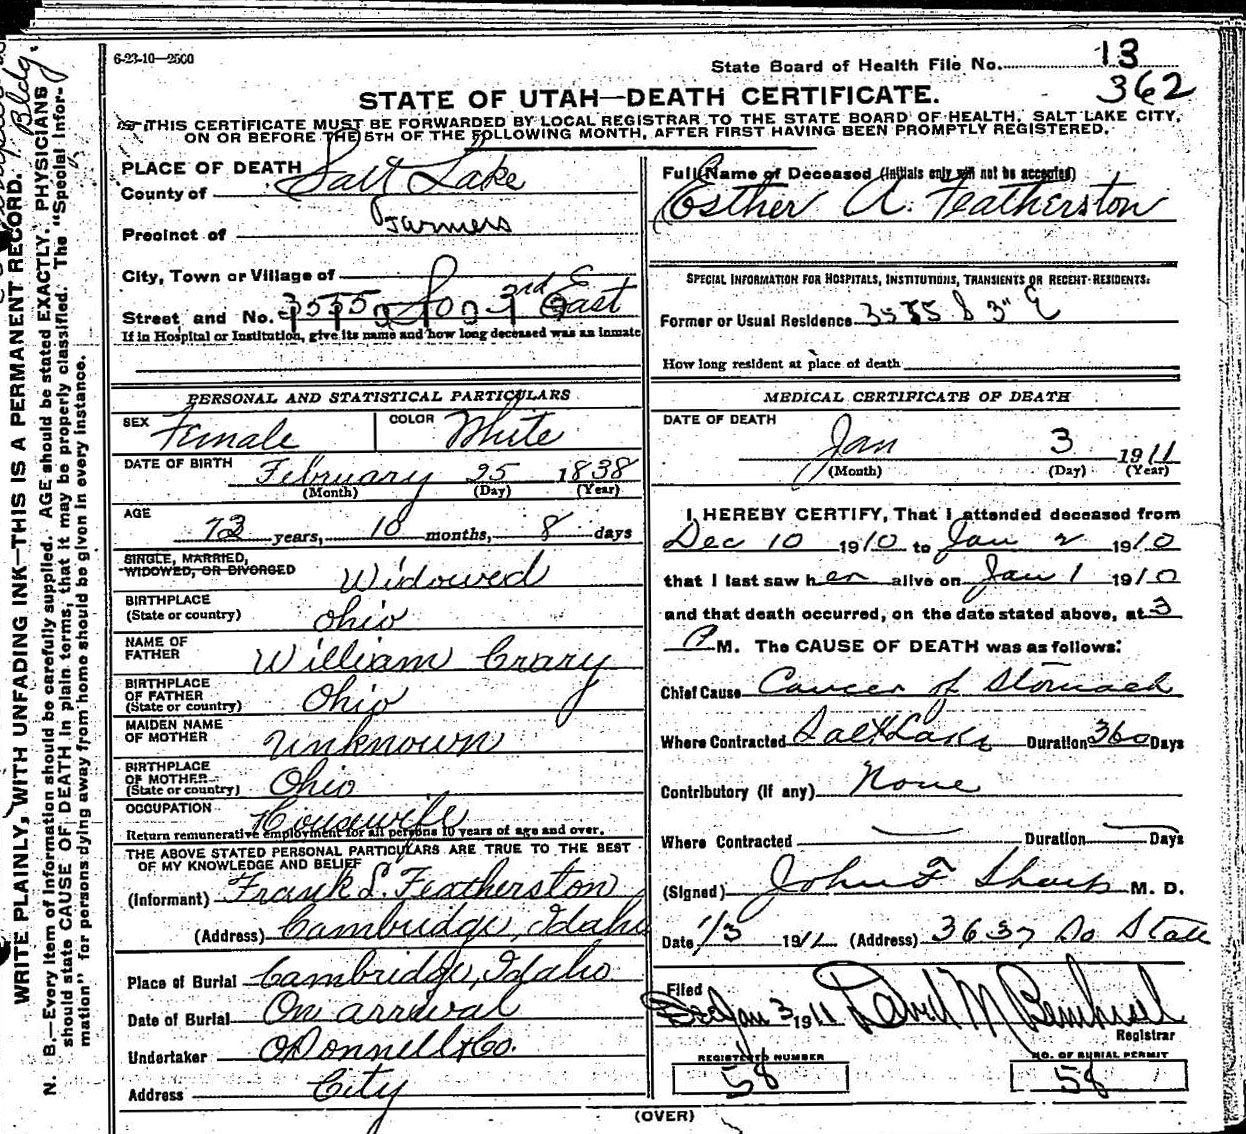 6-23-10—2500
State Board of Health File No. 13
362
STATE OF UTAH—DEATH CERTIFICATE.
THIS CERTIFICATE MUST BE FORWARDED BY LOCAL REGISTRAR TO THE STATE BOARD OF HEALTH, SALT LAKE CITY,
ON OR BEFORE THE 5TH OF THE FOLLOWING MONTH, AFTER FIRST HAVING BEEN PROMPTLY REGISTERED.
PLACE OF DEATH
County of Salt Lake
Precinct of Farmers
City, Town or Village of
Street and No. 3535 So 3rd East
If in Hospital or Institution, give its name and how long deceased was an inmate
PERSONAL AND STATISTICAL PARTICULARS
SEX Female COLOR White
DATE OF BIRTH February 25 1838
(Month) (Day) (Year)
AGE
72 years, 10 months, 8 days
SINGLE, MARRIED,
WIDOWED, OR DIVORCED Widowed
BIRTHPLACE
(State or country) Ohio
NAME OF
FATHER William Crary
BIRTHPLACE
OF FATHER
(State or country) Ohio
MAIDEN NAME
OF MOTHER Unknown
BIRTHPLACE
OF MOTHER
(State or country) Ohio
OCCUPATION Housewife
Return remunerative employment for all persons 10 years of age and over.
THE ABOVE STATED PERSONAL PARTICULARS ARE TRUE TO THE BEST
OF MY KNOWLEDGE AND BELIEF
(Informant) Frank L. Featherston
(Address) Cambridge, Idaho
Place of Burial Cambridge, Idaho
Date of Burial On arrival
Undertaker O'Donnell & Co.
Address City
Full Name of Deceased (Initials only will not be accepted)
Esther A. Featherston
SPECIAL INFORMATION FOR HOSPITALS, INSTITUTIONS, TRANSIENTS OR RECENT RESIDENTS:
Former or Usual Residence 3535 S 3" E
How long resident at place of death
MEDICAL CERTIFICATE OF DEATH
DATE OF DEATH
Jan 3 1911
(Month) (Day) (Year)
I HEREBY CERTIFY, That I attended deceased from
Dec 10 1910 to Jan 2 1910
that I last saw her alive on Jan 1 1910
and that death occurred, on the date stated above, at 3
P M. The CAUSE OF DEATH was as follows:
Chief Cause Cancer of Stomach
Where Contracted Salt Lake Duration 360 Days
Contributory (if any) None
Where Contracted Duration Days
(Signed) John F Sharp M. D.
Date 1/3 1911 (Address) 3637 So State
Filed
Jan 3 1911 David M
Registrar
REGISTERED NUMBER NO. OF BURIAL PERMIT
58 58
(OVER)
WRITE PLAINLY, WITH UNFADING INK—THIS IS A PERMANENT RECORD.
N. B.—Every item of information should be carefully supplied. AGE should be stated EXACTLY. PHYSICIANS
should state CAUSE OF DEATH in plain terms, that it may be properly classified. The "Special Infor-
mation" for persons dying away from home should be given in every instance.
Bldg.